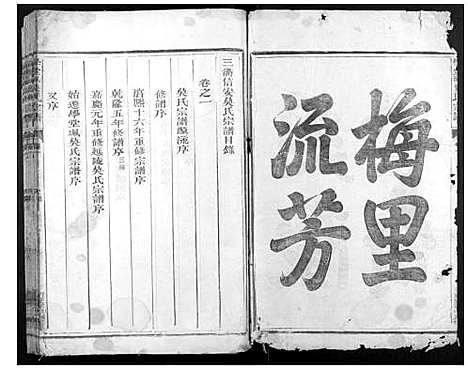 梅里
流芳
三衢信安吳氏宗譜目錄
卷之一
吳氏宗譜源流序
修譜序
康熙十六年重修宗譜序
乾隆五年修譜序
嘉慶元年重修延陵吳氏宗譜序
始遷學堂塢吳氏宗譜序
又序